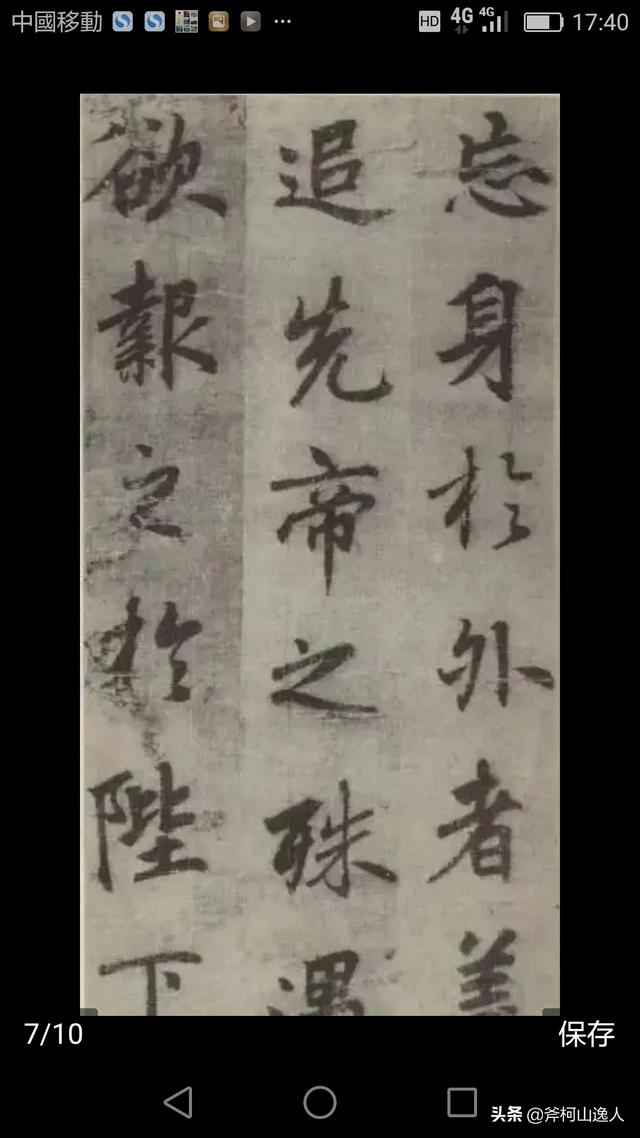 中國移動 HD 4G 4G 17:40
忘身於外者蓋
追先帝之殊遇
欲報之於陛下
7/10
保存
头条 @斧柯山逸人